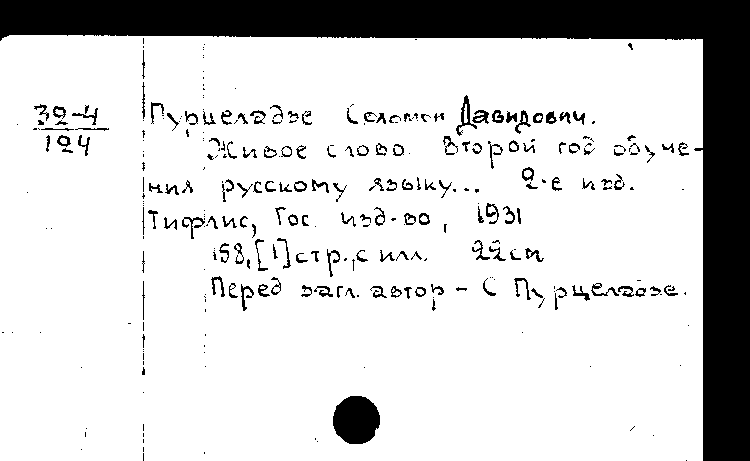 32-4
124
Пурцеладзе Соломон Давидович.
Живое слово. Второй год обуче-
ния русскому языку... 2-е изд.
Тифлис, Гос. изд-во, 1931
158,[1]стр.,с илл. 22см
Перед загл. автор - С Пурцеладзе.